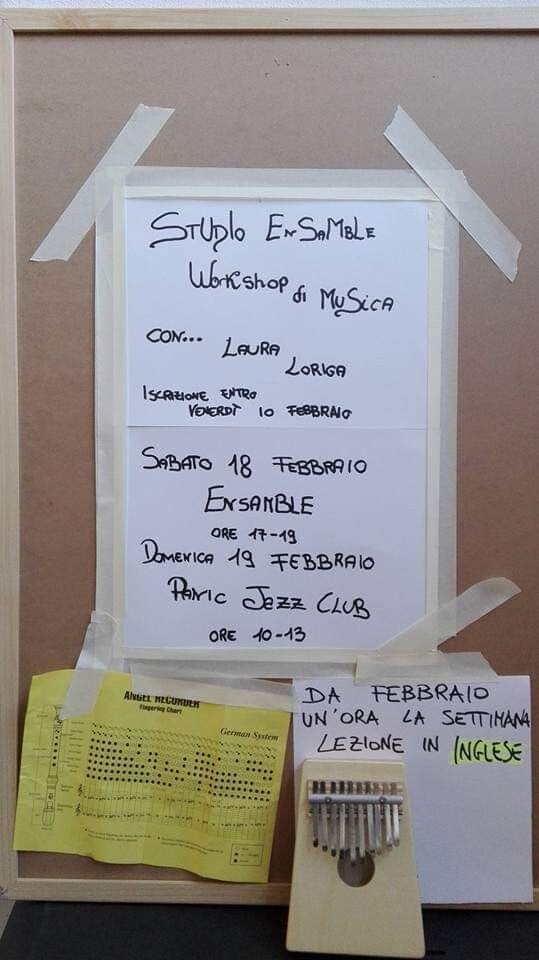 STUDIO ENSAMBLE
WORKSHOP di MUSICA
CON... LAURA LORIGA
ISCRIZIONE ENTRO
VENERDÌ 10 FEBBRAIO
SABATO 18 FEBBRAIO
ENSAMBLE
ORE 17-19
DOMENICA 19 FEBBRAIO
PANIC JAZZ CLUB
ORE 10-13
ANGEL RECORDER
Fingering Chart
German System
DA FEBBRAIO
UN'ORA LA SETTIMANA
LEZIONE IN INGLESE